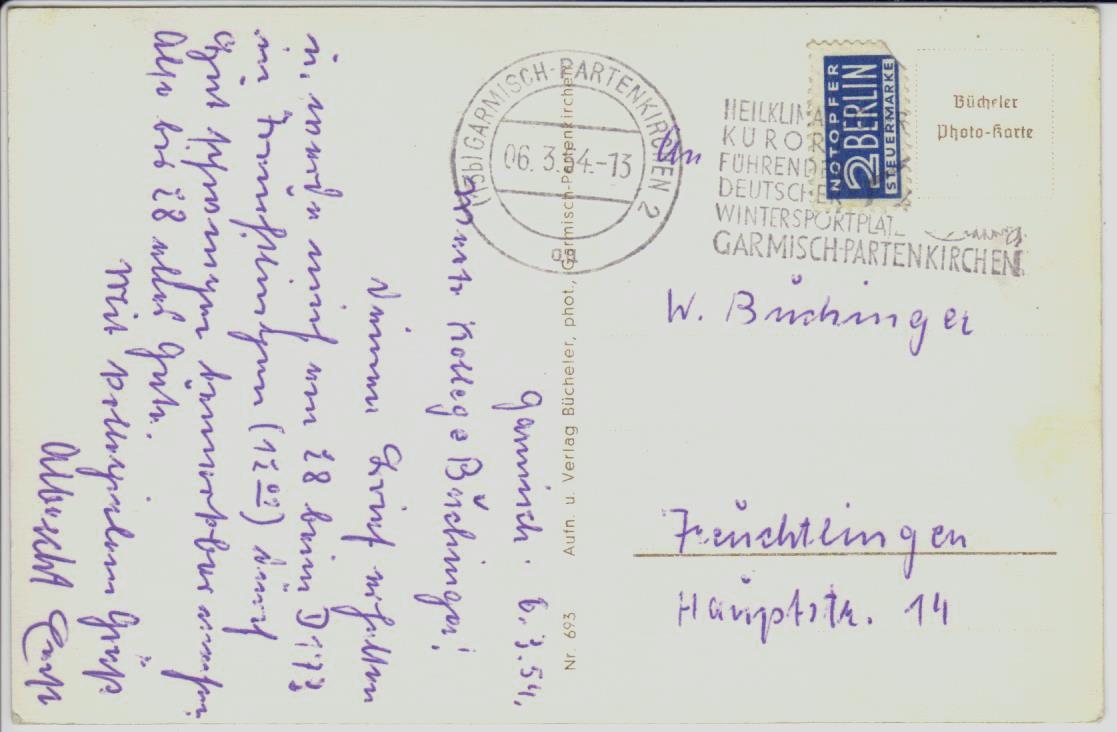 Garmisch. 6.3.54,
Werter Kollege Büchinger!
Deinen Brief erhalten
u. werde mich am 28 beim D 177
in Treuchtlingen (12 09) durch
schwingen bemerkbar machen
Also bis 28 alles Gute.
Mit kollegialem Gruß
Albrecht
Nr. 693 Aufn. u. Verlag Bücheler, phot., Garmisch-Partenkirchen
(13b) GARMISCH-PARTENKIRCHEN 2
06. 3. 54.-13
HEILKLIMA
KUROR
FÜHRENDE
DEUTSCHER
WINTERSPORTPLATZ
GARMISCH-PARTENKIRCHEN
NOTOPFER
2 BERLIN
STEUERMARKE
Bücheler
Photo-Karte
An
W. Büchinger
Treuchtlingen
Hauptstr. 14